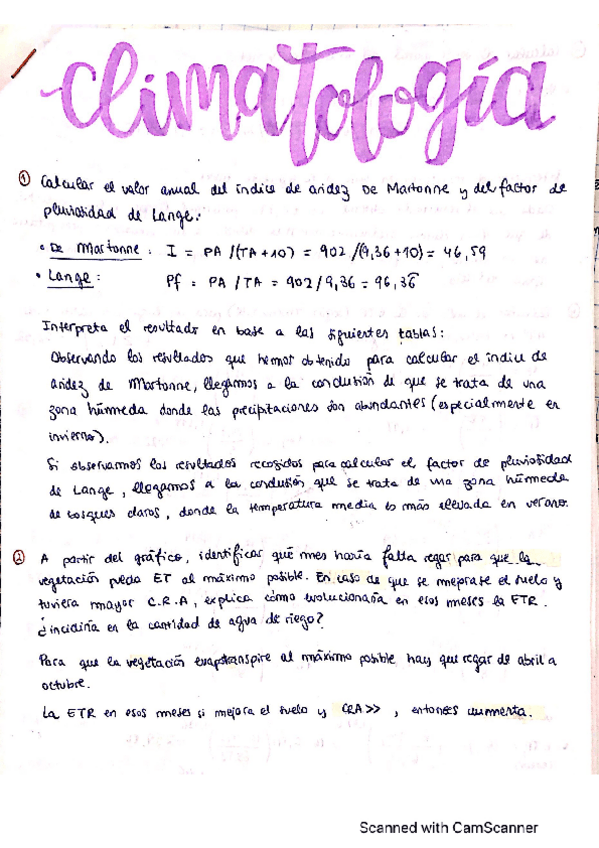 climatología
① Calcular el valor anual del índice de aridez De Martonne y del factor de
pluviosidad de Lange:
• De Martonne : I = PA /(TA+10) = 902 /(9,36+10) = 46,59
• Lange : Pf = PA / TA = 902 / 9,36 = 96,36
Interpreta el resultado en base a las siguientes tablas:
Observando los resultados que hemos obtenido para calcular el índice de
aridez de Martonne, llegamos a la conclusión de que se trata de una
zona húmeda donde las precipitaciones son abundantes (especialmente en
invierno).
Si observamos los resultados recogidos para calcular el factor de pluviosidad
de Lange, llegamos a la conclusión que se trata de una zona húmeda
de bosques claros, donde la temperatura media es más elevada en verano.
② A partir del gráfico, identificar qué mes haría falta regar para que la
vegetación pueda ET al máximo posible. En caso de que se mejorase el suelo y
tuviera mayor C.R.A, explica cómo evolucionaría en esos meses la ETR.
¿incidiría en la cantidad de agua de riego?
Para que la vegetación evapotranspire al máximo posible hay que regar de abril a
octubre.
La ETR en esos meses si mejora el suelo y CRA>> , entonces aumenta.
Scanned with CamScanner